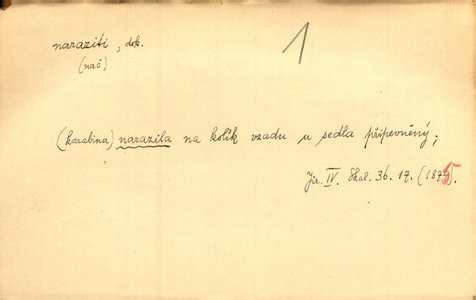 naraziti, dok.
1
(nač)
(karabina) narazila na kolík vzadu u sedla připevněný;
Jir. IV. Skal. 36. 17. (1875).